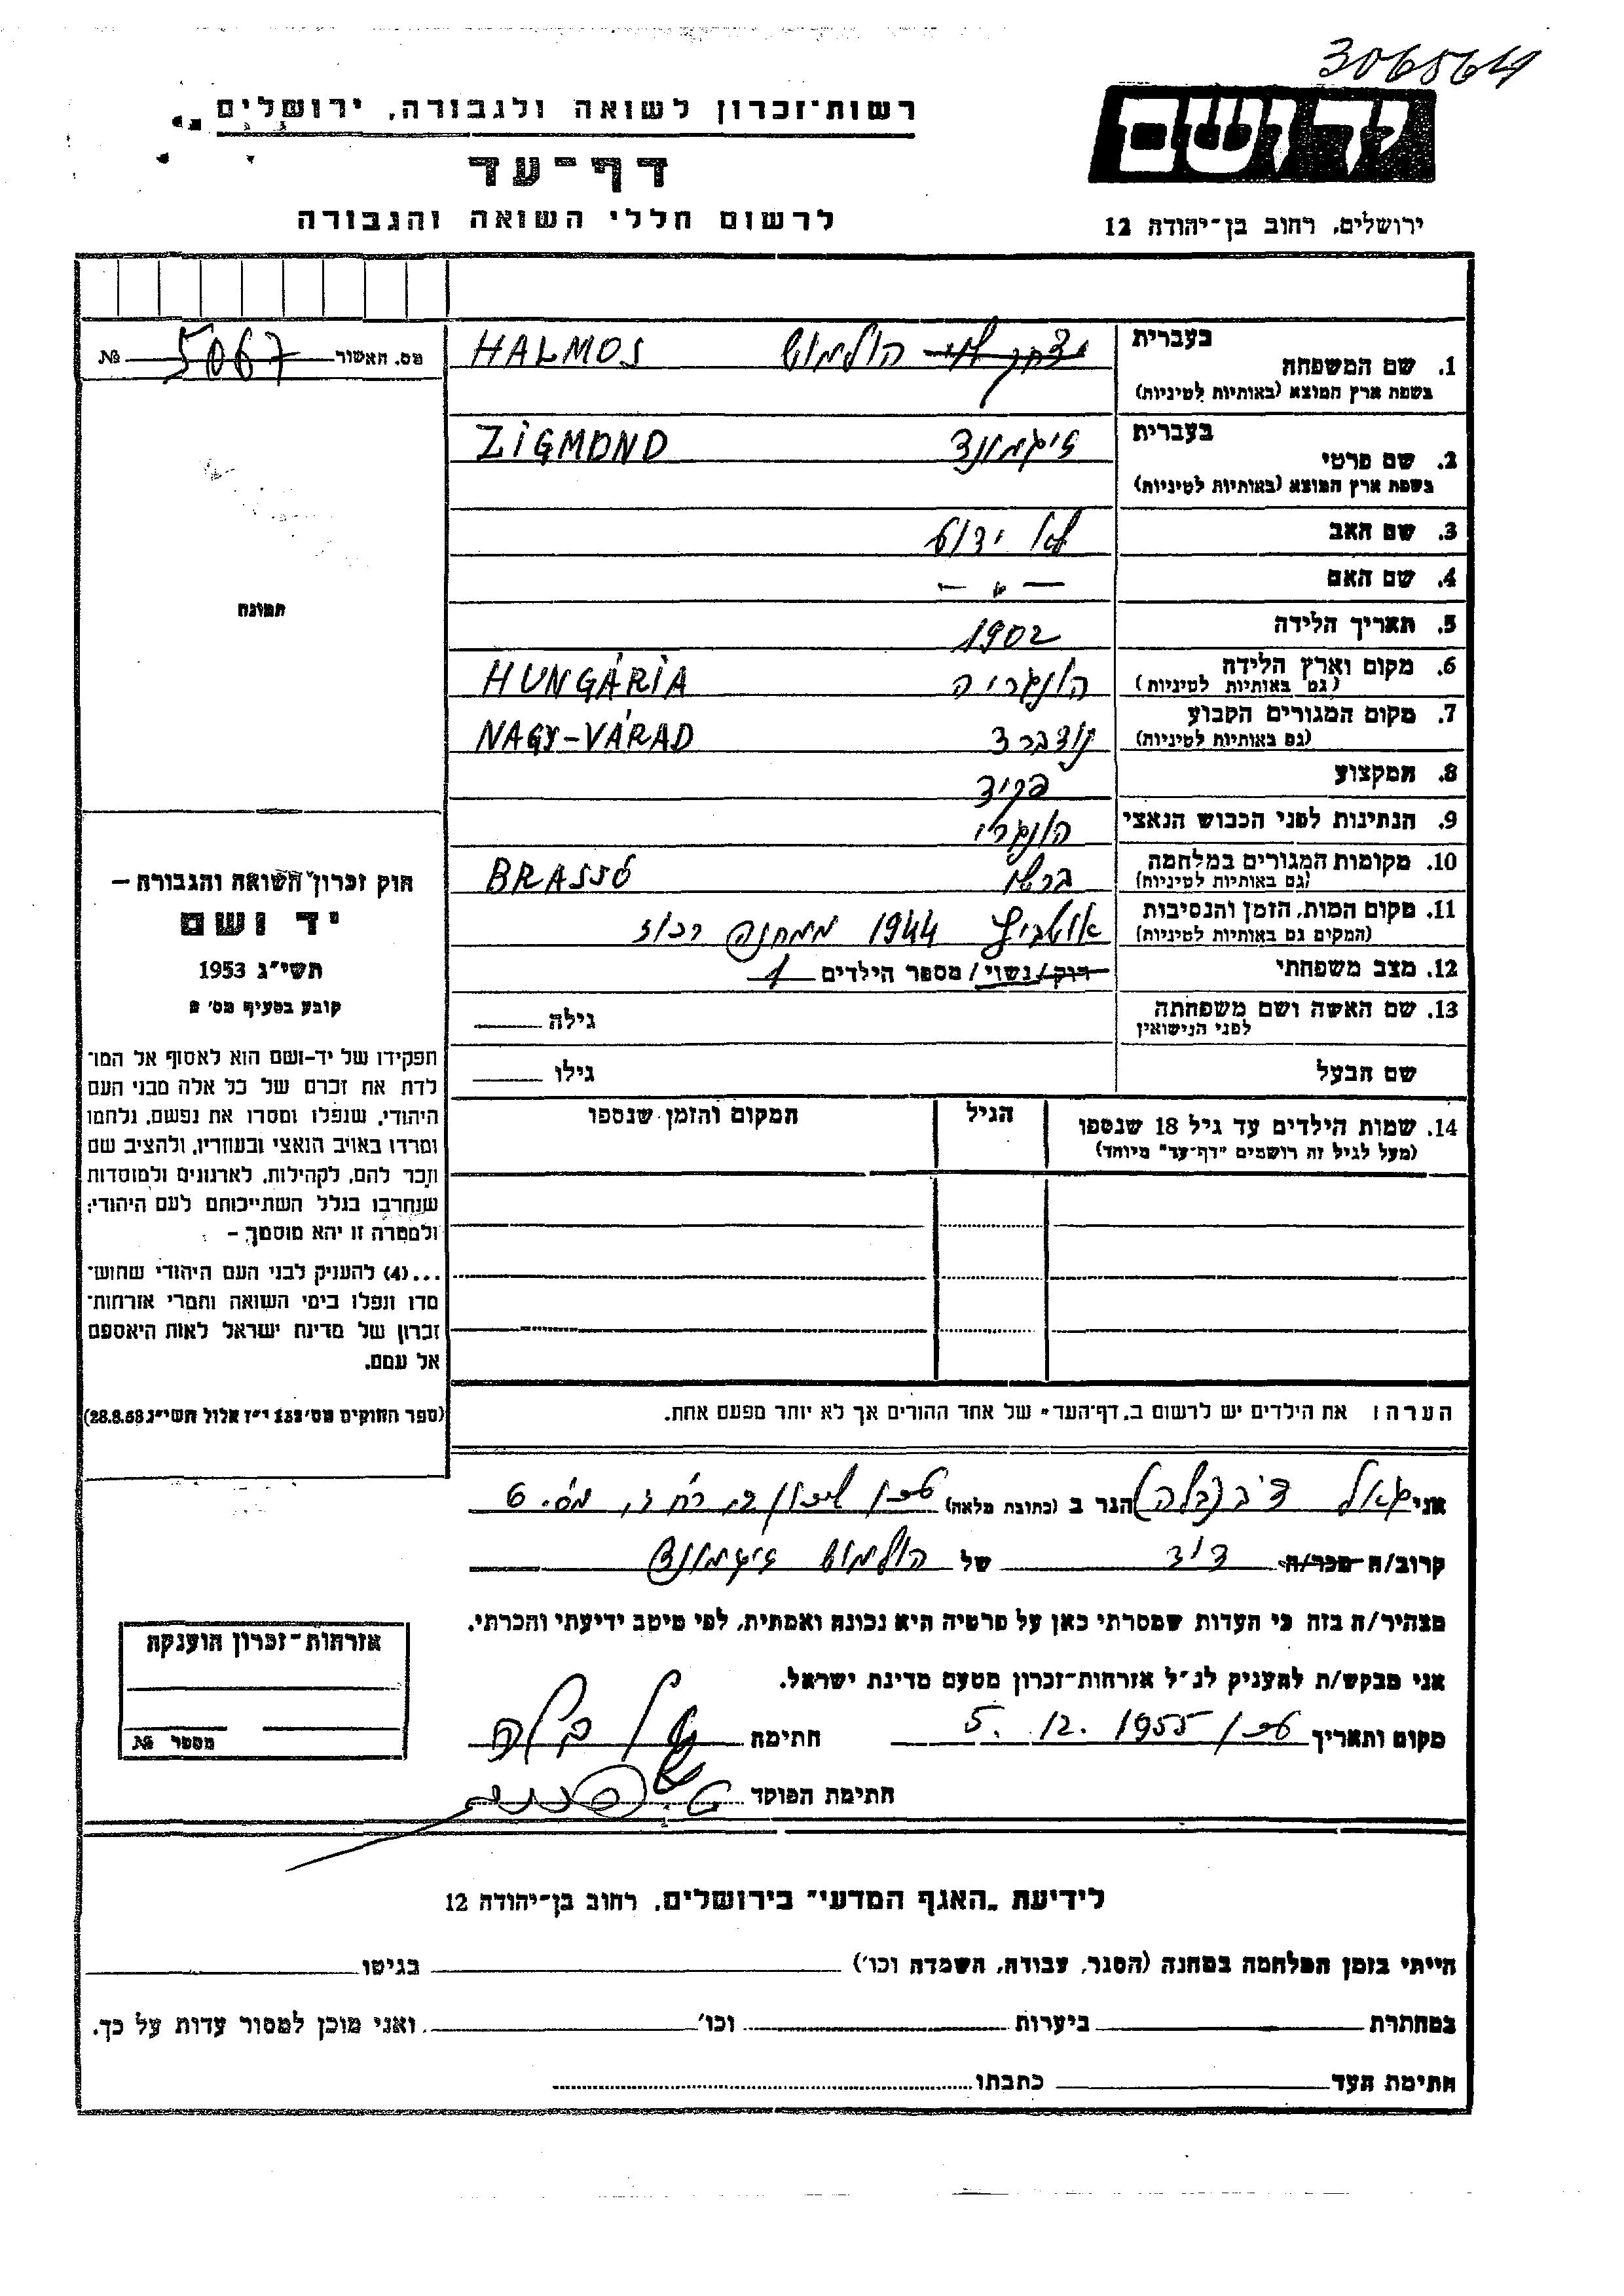 306564
יד ושם
רשות־זכרון לשואה ולגבורה, ירושלים
דף־עד
לרשום חללי השואה והגבורה
ירושלים, רחוב בן־יהודה 12
מס. האשור 5067 №
תמונה
חוק זכרון השואה והגבורה –
יד ושם
תשי״ג 1953
קובע בסעיף מס׳ 2
תפקידו של יד-ושם הוא לאסוף אל המו־
לדת את זכרם של כל אלה מבני העם
היהודי, שנפלו ומסרו את נפשם, נלחמו
ומרדו באויב הנאצי ובעוזריו, ולהציב שם
וזכר להם, לקהילות, לארגונים ולמוסדות
שנחרבו בגלל השתייכותם לעם היהודי;
ולמטרה זו יהא מוסמך –
...(4) להעניק לבני העם היהודי שהוש־
מדו ונפלו בימי השואה והמרי אזרחות־
זכרון של מדינת ישראל לאות היאספם
אל עמם.
(ספר החוקים מס׳ 132 י״ז אלול תשי״ג 28.8.53)
בעברית
1. שם המשפחה הולמוש HALMOS
בשפת ארץ המוצא (באותיות לטיניות)
בעברית
2. שם פרטי זיגמונד ZIGMOND
בשפת ארץ המוצא (באותיות לטיניות)
3. שם האב לא ידוע
4. שם האם — " —
5. תאריך הלידה 1902
6. מקום וארץ הלידה הונגריה HUNGÁRIA
(גם באותיות לטיניות)
7. מקום המגורים הקבוע נודברד NAGY-VÁRAD
(גם באותיות לטיניות)
8. המקצוע פקיד
9. הנתינות לפני הכבוש הנאצי הונגרי
10. מקומות המגורים במלחמה ברשו BRASSÓ
(גם באותיות לטיניות)
11. מקום המות, הזמן והנסיבות אושביץ 1944 ממחנה רכוז
(המקום גם באותיות לטיניות)
12. מצב משפחתי רוק/נשוי/ מספר הילדים 1
13. שם האשה ושם משפחתה גילה
לפני הנישואין
שם הבעל גילו
14. שמות הילדים עד גיל 18 שנספו הגיל המקום והזמן שנספו
(מעל לגיל זה רושמים "דף־עד" מיוחד)
הערה: את הילדים יש לרשום ב„דף־העד״ של אחד ההורים אך לא יותר מפעם אחת.
אני (בלה) הגר ב (כתובת מלאה) מס. 6
קרוב/ה מכר/ה דוד של הולמוש זיגמונד
מצהיר/ה בזה כי העדות שמסרתי כאן על פרטיה היא נכונה ואמתית, לפי מיטב ידיעתי והכרתי.
אני מבקש/ת להעניק לנ״ל אזרחות־זכרון מטעם מדינת ישראל.
מקום ותאריך 5. 12. 1955 חתימה
חתימת הפוקד
אזרחות־זכרון הוענקה
מספר №
לידיעת „האגף המדעי״ בירושלים, רחוב בן־יהודה 12
הייתי בזמן המלחמה במחנה (הסגר, עבודה, השמדה וכו׳) בגיטו
במחתרת ביערות וכו׳ ואני מוכן למסור עדות על כך.
חתימת העד כתבתו